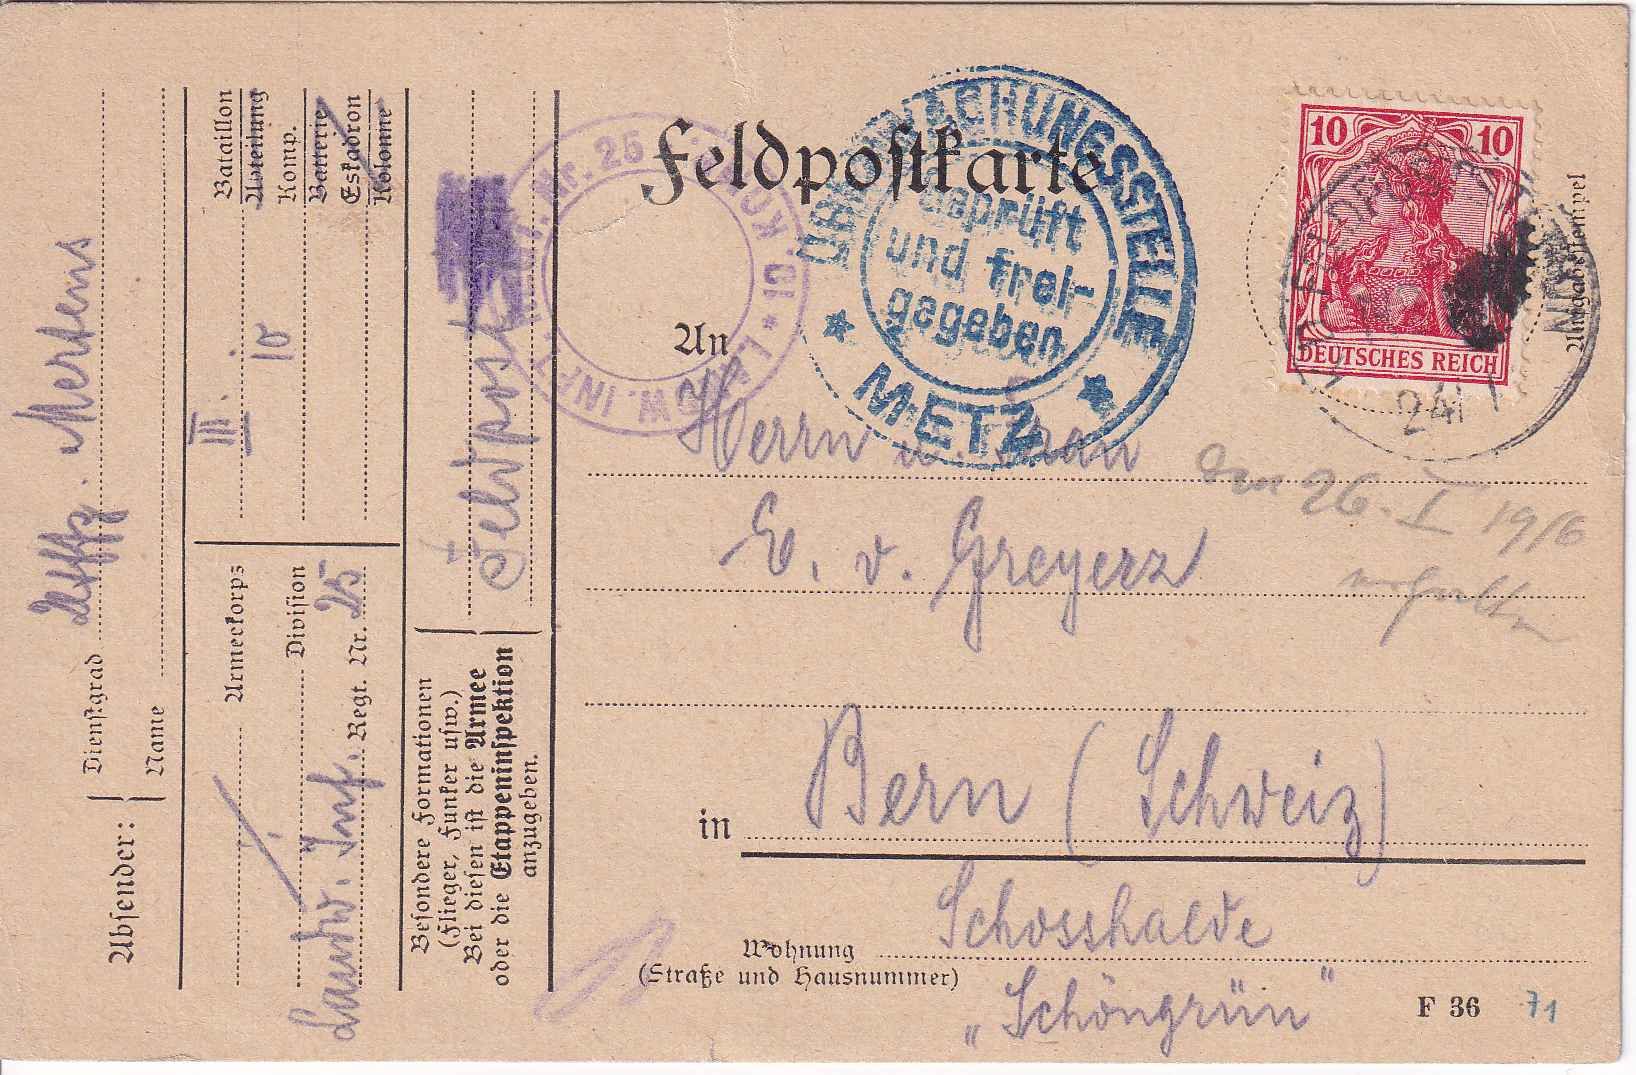 Feldpostkarte
ÜBERWACHUNGSSTELLE
Geprüft
und frei-
gegeben
* METZ *
10 10
DEUTSCHES REICH
24 1
Aufgabestempel
LANDW. INFT. REGT. Nr. 25
An
Herrn u. Frau
E. v. Greyerz
den 26. I 1916
erhalten
in Bern (Schweiz)
Schosshalde
Wohnung
(Straße und Hausnummer)
„Schöngrün"
F 36
71
Absender:
Dienstgrad Uffz. Mertens
Name
Armeekorps
Division
Landw. Inf. Regt. Nr. 25
Bataillon III.
Abteilung
Komp. 10
Batterie
Eskadron
Kolonne
Besondere Formationen
(Flieger, Funker usw.)
Bei diesen ist die Armee
oder die Etappeninspektion
anzugeben.
Feldpost